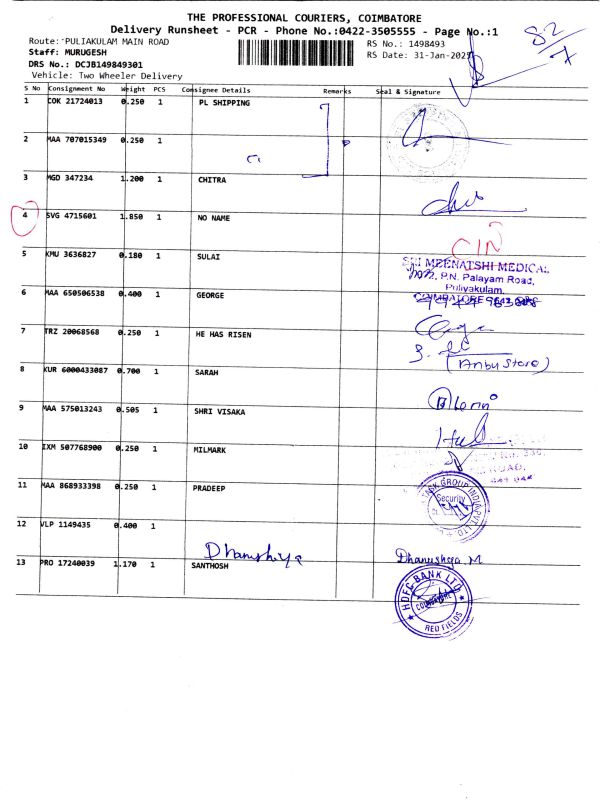 THE PROFESSIONAL COURIERS, COIMBATORE
Delivery Runsheet - PCR - Phone No.:0422-3505555 - Page No.:1
Route: PULIAKULAM MAIN ROAD
RS No.: 1498493
82/7
Staff: MURUGESH
RS Date: 31-Jan-2025
DRS No.: DCJB149849301
Vehicle: Two Wheeler Delivery
S No Consignment No Weight PCS Consignee Details Remarks Seal & Signature
1 COK 21724013 0.250 1 PL SHIPPING
2 MAA 707015349 0.250 1
3 MGD 347234 1.200 1 CHITRA
4 SVG 4715601 1.850 1 NO NAME
CIN
5 KMU 3636827 0.180 1 SULAI
SRI MEENATSHI MEDICAL
P.N. Palayam Road,
Puliyakulam,
COIMBATORE
6 MAA 650506538 0.400 1 GEORGE
7 TRZ 20068568 0.250 1 HE HAS RISEN
(Anbu Store)
8 KUR 6000433087 0.700 1 SARAH
9 MAA 575013243 0.505 1 SHRI VISAKA
10 IXM 507768900 0.250 1 MILMARK
ROAD,
11 MAA 868933398 0.250 1 PRADEEP
GROUP INDIA PVT. LTD.
Security
12 VLP 1149435 0.400 1 Dhanushya
Dhanushya M
13 PRO 17240039 1.170 1 SANTHOSH
HDFC BANK LTD
COIMBATORE
RED FIELDS